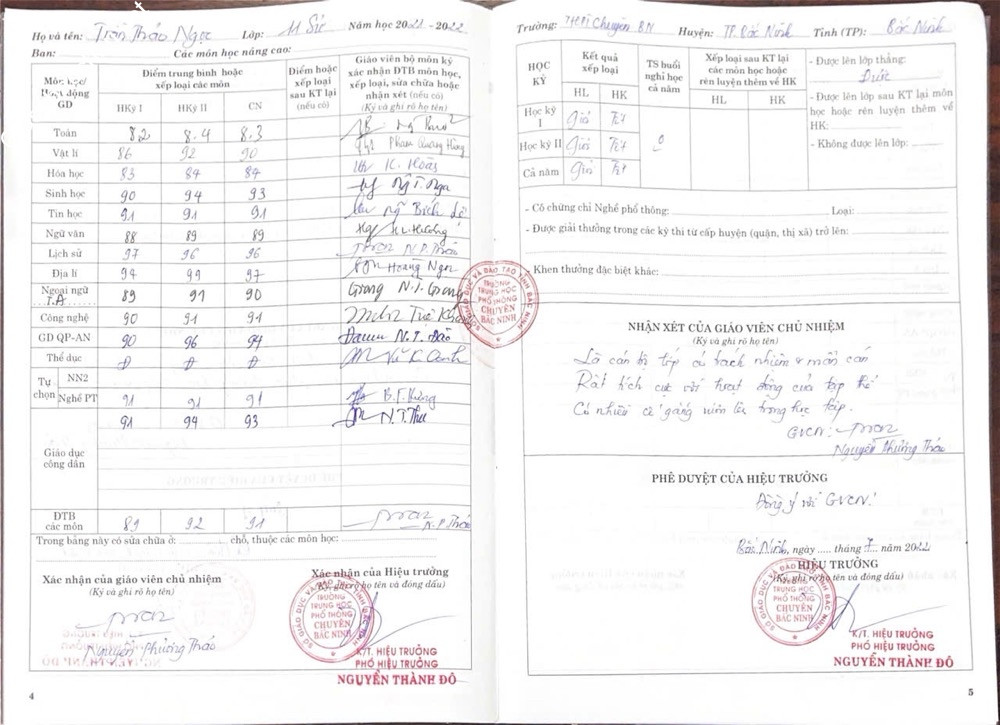 Họ và tên: Trần Thảo Ngọc Lớp: 11 Sử Năm học 2021 - 2022
Ban: Các môn học nâng cao:
Môn học/ Hoạt động GD
Điểm trung bình hoặc xếp loại các môn
HKỳ I HKỳ II CN
Điểm hoặc xếp loại sau KT lại (nếu có)
Giáo viên bộ môn ký xác nhận ĐTB môn học, xếp loại, sửa chữa hoặc nhận xét (nếu có)
(Ký và ghi rõ họ tên)
Toán 8.2 8.4 8.3
Vật lí 86 92 90 Phạm Quang Hưng
Hóa học 83 84 84 K. Hoàn
Sinh học 90 94 93 Ng T. Nga
Tin học 91 91 91 Ng Bích
Ngữ văn 88 89 89
Lịch sử 97 96 96 N.P.Thảo
Địa lí 94 99 97 Hoàng Ngọc
Ngoại ngữ T.A 89 91 90 Giang N.T. Giang
Công nghệ 90 91 91
GD QP-AN 90 96 94 N.T. Đào
Thể dục Đ Đ Đ
Tự chọn
NN2
Nghề PT 91 91 91
Giáo dục công dân 91 94 93 N.T.Thu
ĐTB các môn 89 92 91 N.P.Thảo
Trong bảng này có sửa chữa ở: chỗ, thuộc các môn học:
Xác nhận của giáo viên chủ nhiệm
(Ký và ghi rõ họ tên)
Nguyễn Phương Thảo
Xác nhận của Hiệu trưởng
(Ký, ghi rõ họ tên và đóng dấu)
SỞ GIÁO DỤC VÀ ĐÀO TẠO TỈNH BẮC NINH
TRƯỜNG
TRUNG HỌC
PHỔ THÔNG
CHUYÊN
BẮC NINH
K/T. HIỆU TRƯỞNG
PHÓ HIỆU TRƯỞNG
NGUYỄN THÀNH ĐÔ
4
Trường: THPT Chuyên BN Huyện: TP. Bắc Ninh Tỉnh (TP): Bắc Ninh
HỌC KỲ
Kết quả xếp loại
HL HK
TS buổi nghỉ học cả năm
Xếp loại sau KT lại các môn học hoặc rèn luyện thêm về HK
HL HK
Học kỳ I Giỏi Tốt
Học kỳ II Giỏi Tốt 0
Cả năm Giỏi Tốt
- Được lên lớp thẳng:
Được
- Được lên lớp sau KT lại môn học hoặc rèn luyện thêm về HK:
- Không được lên lớp:
- Có chứng chỉ Nghề phổ thông: Loại:
- Được giải thưởng trong các kỳ thi từ cấp huyện (quận, thị xã) trở lên:
- Khen thưởng đặc biệt khác:
SỞ GIÁO DỤC VÀ ĐÀO TẠO TỈNH BẮC NINH
TRƯỜNG
TRUNG HỌC
PHỔ THÔNG
CHUYÊN
BẮC NINH
NHẬN XÉT CỦA GIÁO VIÊN CHỦ NHIỆM
(Ký và ghi rõ họ tên)
Là cán bộ lớp có trách nhiệm & mẫn cán
Rất tích cực với hoạt động của tập thể
Có nhiều cố gắng vươn lên trong học tập.
GVCN:
Nguyễn Phương Thảo
PHÊ DUYỆT CỦA HIỆU TRƯỞNG
Đồng ý với GVCN!
Bắc Ninh, ngày ..... tháng 7 năm 2022
HIỆU TRƯỞNG
(Ký, ghi rõ họ tên và đóng dấu)
SỞ GIÁO DỤC VÀ ĐÀO TẠO TỈNH BẮC NINH
TRƯỜNG
TRUNG HỌC
PHỔ THÔNG
CHUYÊN
BẮC NINH
K/T. HIỆU TRƯỞNG
PHÓ HIỆU TRƯỞNG
NGUYỄN THÀNH ĐÔ
5